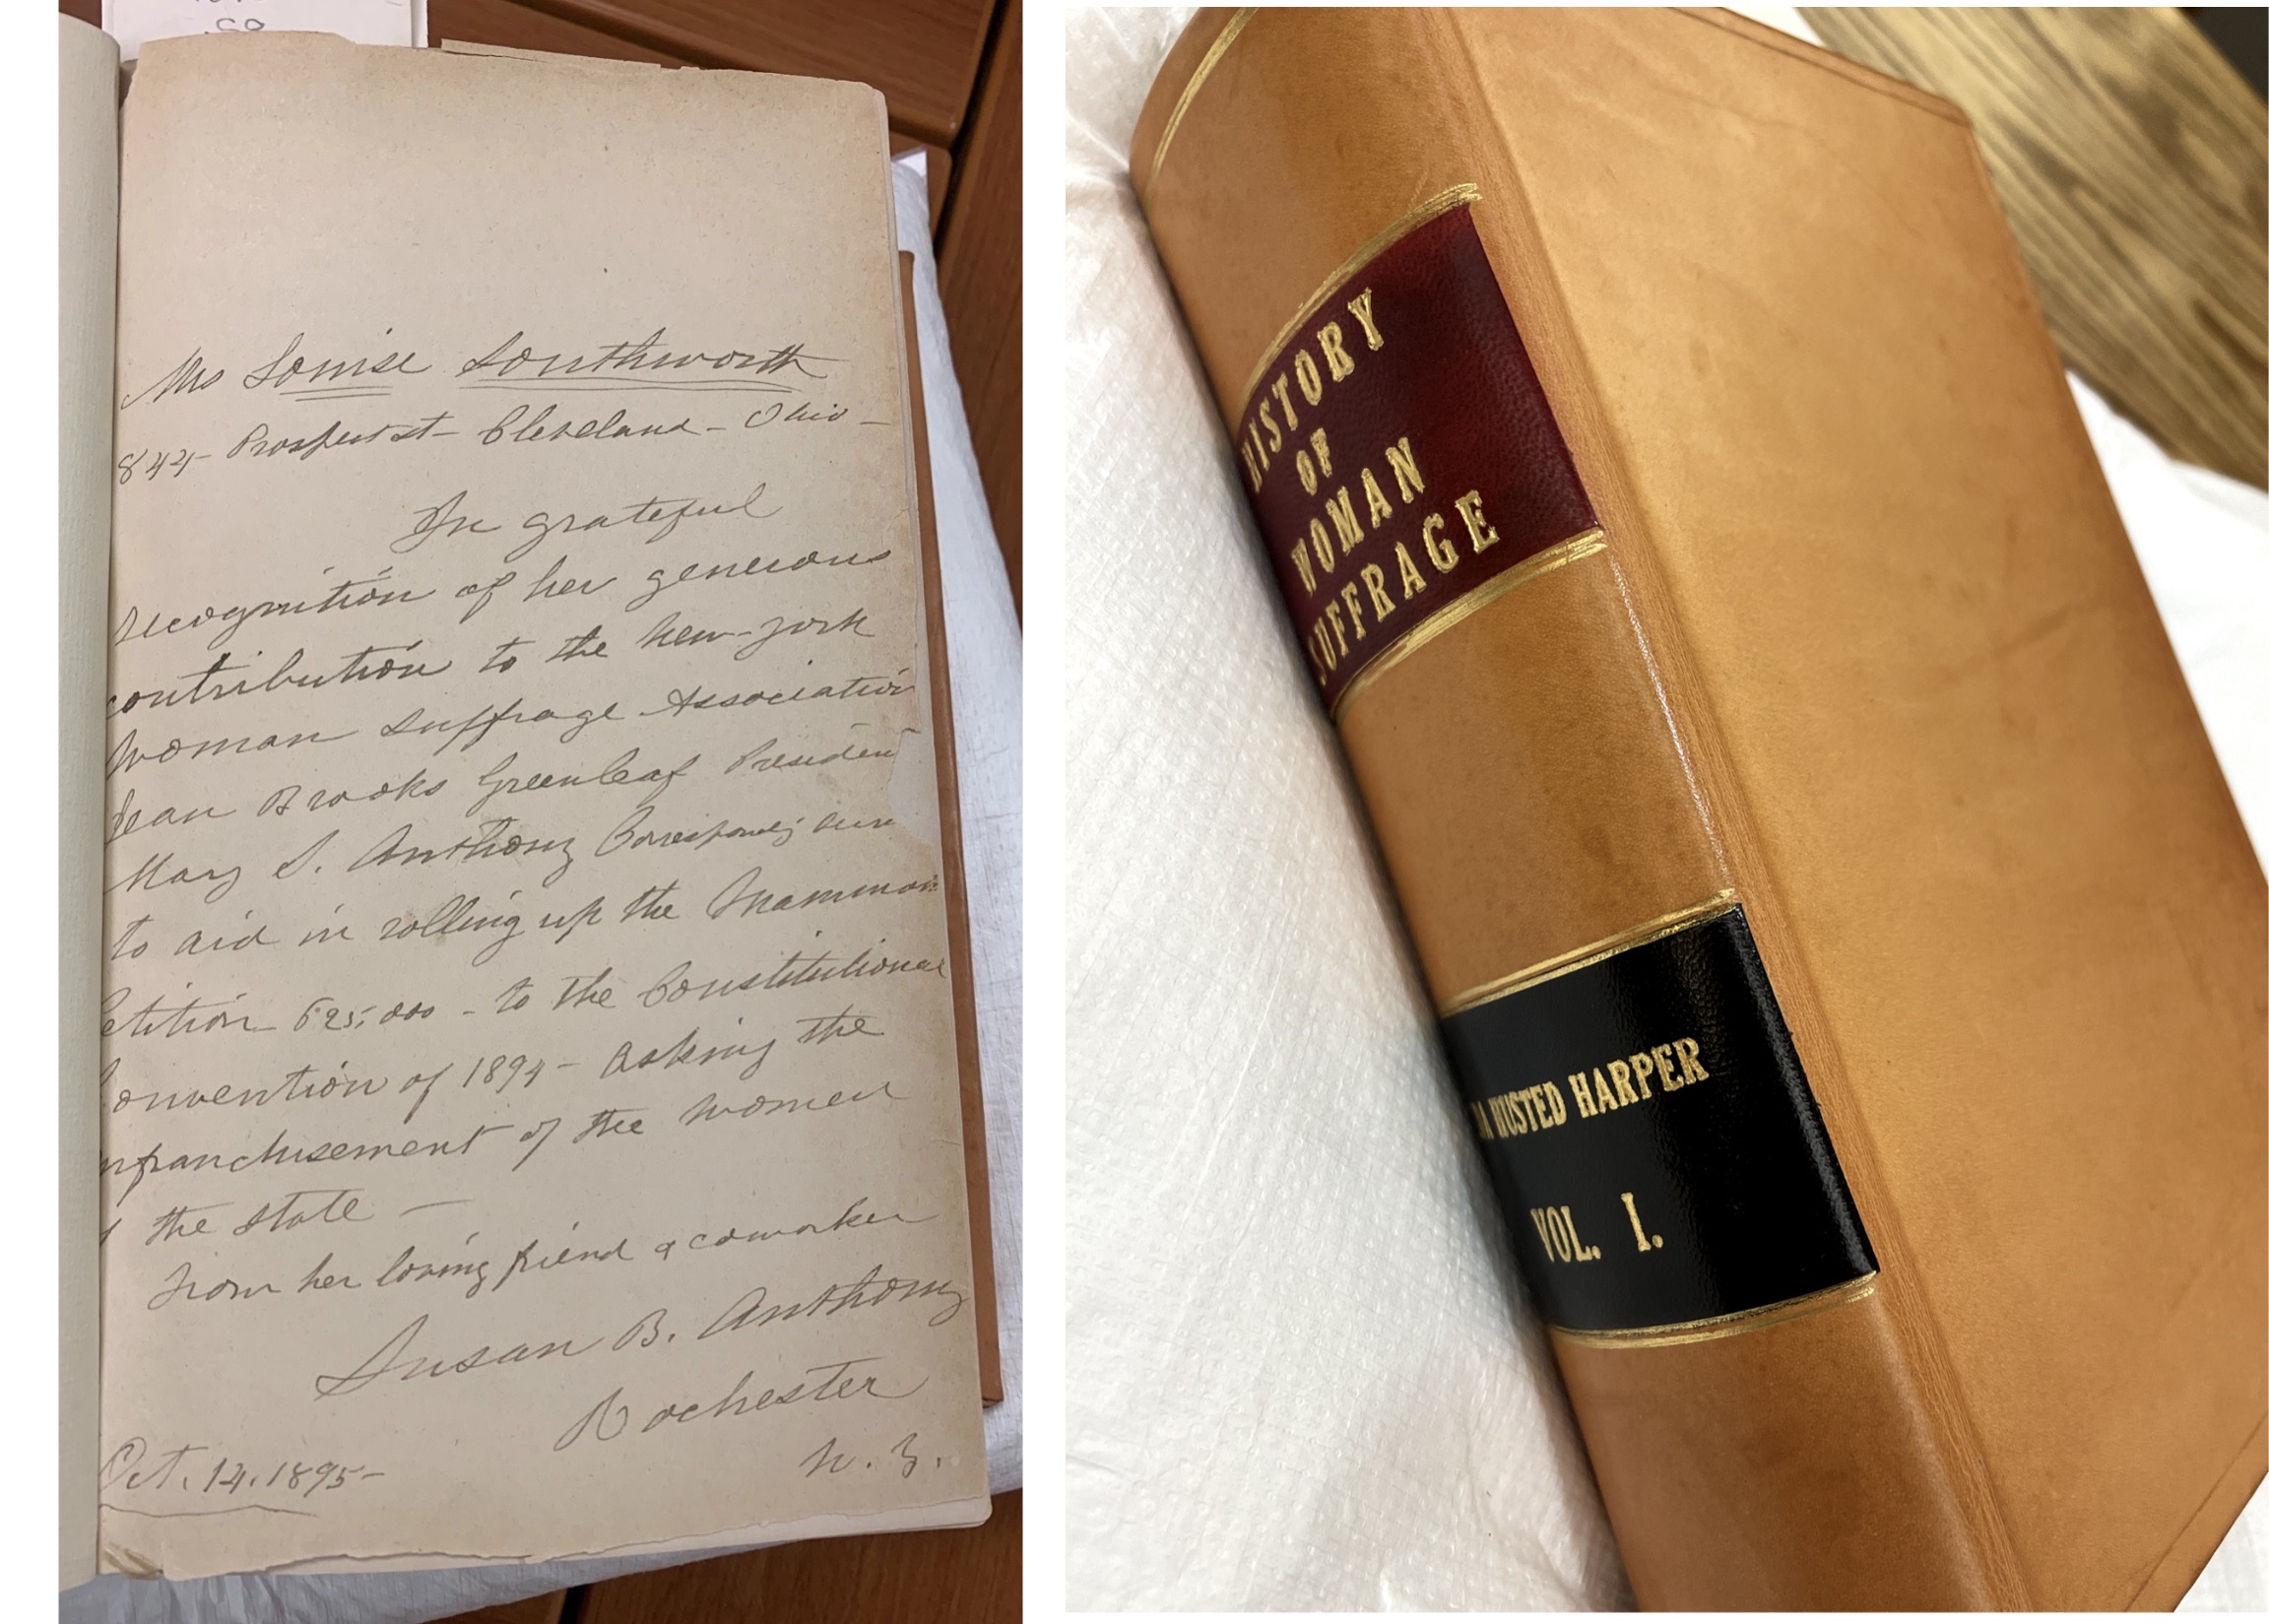 Mrs Louise Southworth
844- Prospect st- Cleveland- Ohio-
In grateful
recognition of her generous
contribution to the New-York
Woman Suffrage Association
Jean Brooks Greenleaf President
Mary S. Anthony
to aid in rolling up the Mammoth
etition 625,000 - to the Constitutional
onvention of 1894- asking the
nfranchisement of the women
the state -
From her loving friend & coworker
Susan B. Anthony
Rochester
N. Y.
Oct. 14. 1895-
HISTORY
OF
WOMAN
SUFFRAGE
DA HUSTED HARPER
VOL. I.